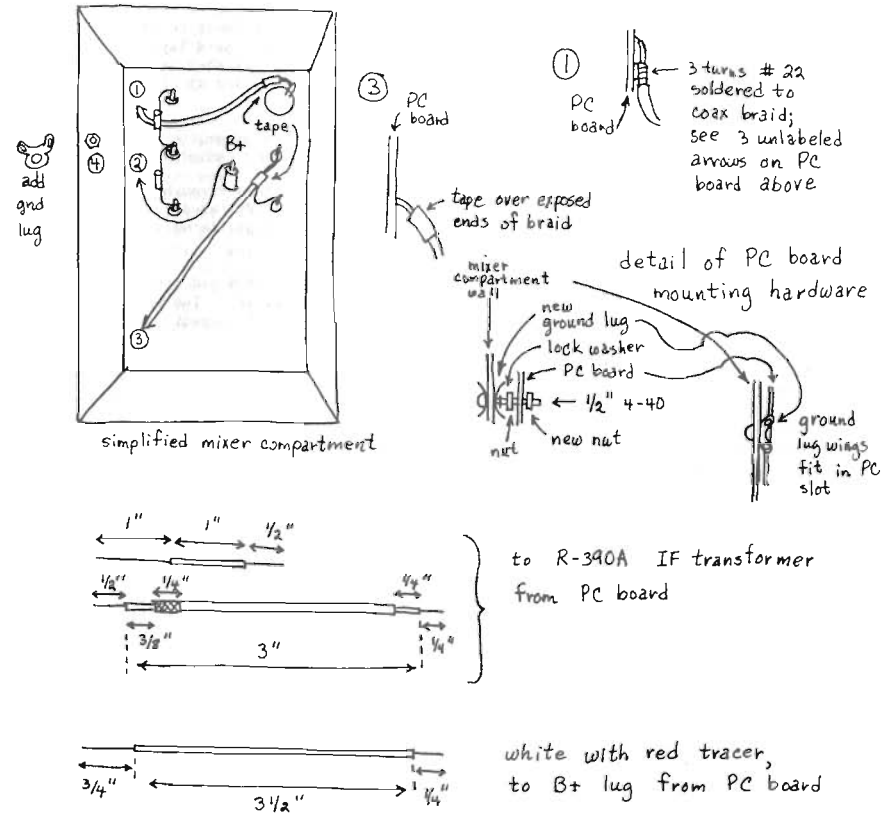 ①
tape
B+
②
④
add
gnd
lug
③
simplified mixer compartment
③
PC
board
tape over exposed
ends of braid
①
PC
board
3 turns # 22
soldered to
coax braid;
see 3 unlabeled
arrows on PC
board above
detail of PC board
mounting hardware
mixer
compartment
wall
new
ground lug
lock washer
PC board
1/2" 4-40
nut
new nut
ground
lug wings
fit in PC
slot
1" 1" 1/2"
1/2" 1/4" 1/4"
3/8" 1/4"
3"
to R-390A IF transformer
from PC board
3/4" 3 1/2" 1/4"
white with red tracer,
to B+ lug from PC board